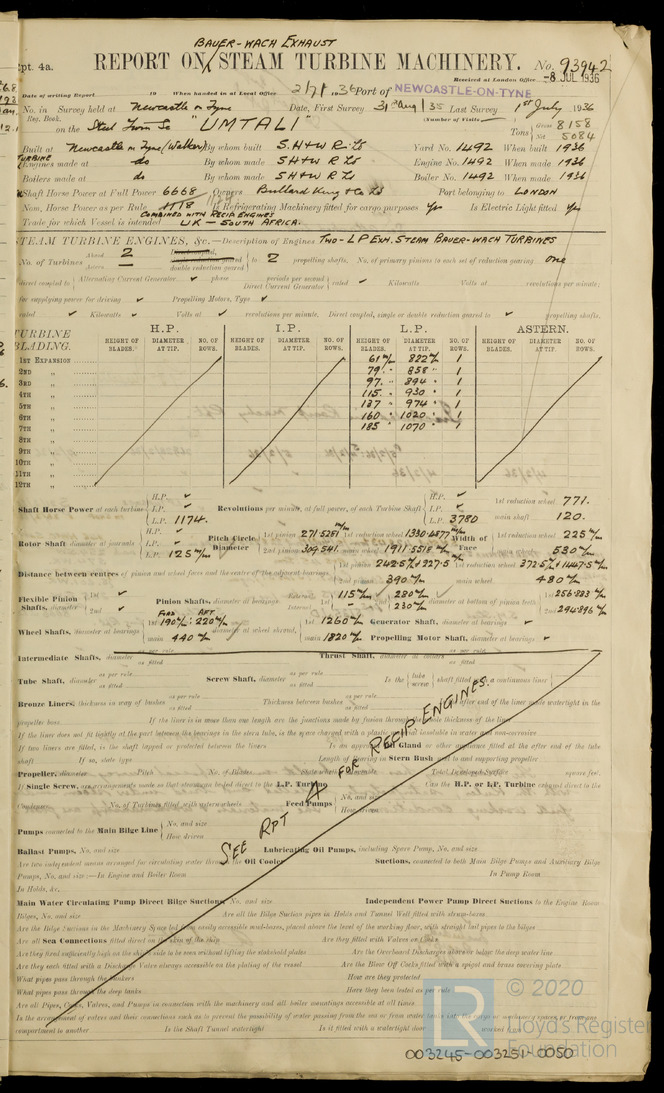 BAUER-WACH EXHAUST
Rpt. 4a. REPORT ON STEAM TURBINE MACHINERY. No. 93942
Received at London Office -8 JUL 1936
Date of writing Report 19 When handed in at Local Office 2/7/1936 Port of NEWCASTLE-ON-TYNE
No. in Survey held at Newcastle on Tyne Date, First Survey 31st Aug/35 Last Survey 1st July 1936
Reg. Book. (Number of Visits
on the Steel "UMTALI" Tons Gross 8158
Net 5084
Built at Newcastle on Tyne (Walker) By whom built S.H & W R. Ld Yard No. 1492 When built 1936
TURBINE Engines made at do By whom made S H & W R Ld Engine No. 1492 When made 1936
Boilers made at do By whom made S H & W R Ld Boiler No. 1492 When made 1936
Shaft Horse Power at Full Power 6668 Owners Bullard King & Co Ld Port belonging to LONDON
Nom. Horse Power as per Rule Is Refrigerating Machinery fitted for cargo purposes Yes Is Electric Light fitted Yes
COMBINED WITH RECIP ENGINES
Trade for which Vessel is intended UK - SOUTH AFRICA.
STEAM TURBINE ENGINES, &c.—Description of Engines TWO-LP EXH. STEAM BAUER-WACH TURBINES
No. of Turbines Ahead 2 Astern — double reduction geared to 2 propelling shafts. No. of primary pinions to each set of reduction gearing one
direct coupled to Alternating Current Generator ✓ phase periods per second
Direct Current Generator rated ✓ Kilowatts Volts at revolutions per minute;
for supplying power for driving ✓ Propelling Motors, Type ✓
rated ✓ Kilowatts ✓ Volts at ✓ revolutions per minute. Direct coupled, single or double reduction geared to ✓ propelling shafts.
TURBINE BLADING. H.P. I.P. L.P. ASTERN.
HEIGHT OF BLADES. DIAMETER AT TIP. NO. OF ROWS. HEIGHT OF BLADES. DIAMETER AT TIP. NO. OF ROWS. HEIGHT OF BLADES. DIAMETER AT TIP. NO. OF ROWS. HEIGHT OF BLADES. DIAMETER AT TIP. NO. OF ROWS.
1ST EXPANSION 61 m/m 822 m/m 1
2ND „ 79 " 858 " 1
3RD „ 97 " 894 " 1
4TH „ 115 " 930 " 1
5TH „ 137 " 974 " 1
6TH „ 160 " 1020 " 1
7TH „ 185 " 1070 " 1
8TH „
9TH „
10TH „
11TH „
12TH „
Shaft Horse Power at each turbine H.P. ✓ I.P. ✓ L.P. 1174. Revolutions per minute, at full power, of each Turbine Shaft H.P. ✓ I.P. ✓ L.P. 3780 1st reduction wheel 771.
main shaft 120.
Rotor Shaft diameter at journals H.P. ✓ I.P. ✓ L.P. 125 m/m Pitch Circle Diameter 1st pinion 271.5281 m/m 1st reduction wheel 1330.4877 m/m Width of Face 1st reduction wheel 225 m/m
2nd pinion 304.541 main wheel 1911.5518 m/m main wheel 530 m/m
Distance between centres of pinion and wheel faces and the centre of the adjacent bearings 1st pinion 242.5 & 227.5 1st reduction wheel 372.5 & 1447.5 m/m
2nd pinion 390 m/m main wheel 480 m/m
Flexible Pinion Shafts, diameter 1st ✓ 2nd ✓ Pinion Shafts, diameter at bearings 1st 115 m/m 280 m/m 230 m/m diameter at bottom of pinion teeth 1st 256.823 m/m
2nd 294.896 m/m
Wheel Shafts, diameter at bearings FWD AFT 1st 190 m/m : 220 m/m main 440 m/m diameter at wheel shroud, 1st 1260 m/m main 1820 m/m Generator Shaft, diameter at bearings ✓
Propelling Motor Shaft, diameter at bearings ✓
Intermediate Shafts, diameter as per rule as fitted Thrust Shaft, diameter at collars as per rule as fitted
Tube Shaft, diameter as per rule as fitted Screw Shaft, diameter as per rule as fitted Is the tube screw shaft fitted with a continuous liner
Bronze Liners, thickness in way of bushes as per rule as fitted Thickness between bushes as per rule as fitted after end of the liner made watertight in the
propeller boss If the liner is in more than one length are the junctions made by fusion through the whole thickness of the liner
If the liner does not fit tightly at the part between the bearings in the stern tube, is the space charged with a plastic material insoluble in water and non-corrosive
If two liners are fitted, is the shaft lapped or protected between the liners Is an approved Oil Gland or other appliance fitted at the after end of the tube
shaft If so, state type Length of Bearing in Stern Bush next to and supporting propeller
Propeller, diameter Pitch No. of Blades State whether Moveable Total Developed Surface square feet.
If Single Screw, are arrangements made so that steam can be led direct to the L.P. Turbine Can the H.P. or I.P. Turbine exhaust direct to the
Condenser No. of Turbines fitted with astern wheels Feed Pumps No. and size
How driven
Pumps connected to the Main Bilge Line No. and size
How driven
SEE RPT 4 FOR RECIP ENGINES.
Ballast Pumps, No. and size Lubricating Oil Pumps, including Spare Pump, No. and size
Are two independent means arranged for circulating water through the Oil Cooler Suctions, connected to both Main Bilge Pumps and Auxiliary Bilge
Pumps, No. and size:—In Engine and Boiler Room In Pump Room
In Holds, &c.
Main Water Circulating Pump Direct Bilge Suctions, No. and size Independent Power Pump Direct Suctions to the Engine Room
Bilges, No. and size Are all the Bilge Suction pipes in Holds and Tunnel Well fitted with strum-boxes
Are the Bilge Suctions in the Machinery Space led from easily accessible mud-boxes, placed above the level of the working floor, with straight tail pipes to the bilges
Are all Sea Connections fitted direct on the skin of the ship Are they fitted with Valves or Cocks
Are they fixed sufficiently high on the ship's side to be seen without lifting the stokehold plates Are the Overboard Discharges above or below the deep water line
Are they each fitted with a Discharge Valve always accessible on the plating of the vessel Are the Blow Off Cocks fitted with a spigot and brass covering plate
What pipes pass through the bunkers How are they protected
What pipes pass through the deep tanks Have they been tested as per rule
Are all Pipes, Cocks, Valves, and Pumps in connection with the machinery and all boiler mountings accessible at all times
Is the arrangement of valves and their connections such as to prevent the possibility of water passing from the sea or from water tanks into the cargo or machinery spaces, or from one
compartment to another Is the Shaft Tunnel watertight Is it fitted with a watertight door worked from
LR © 2020
Lloyd's Register
Foundation
003245-003251-0050